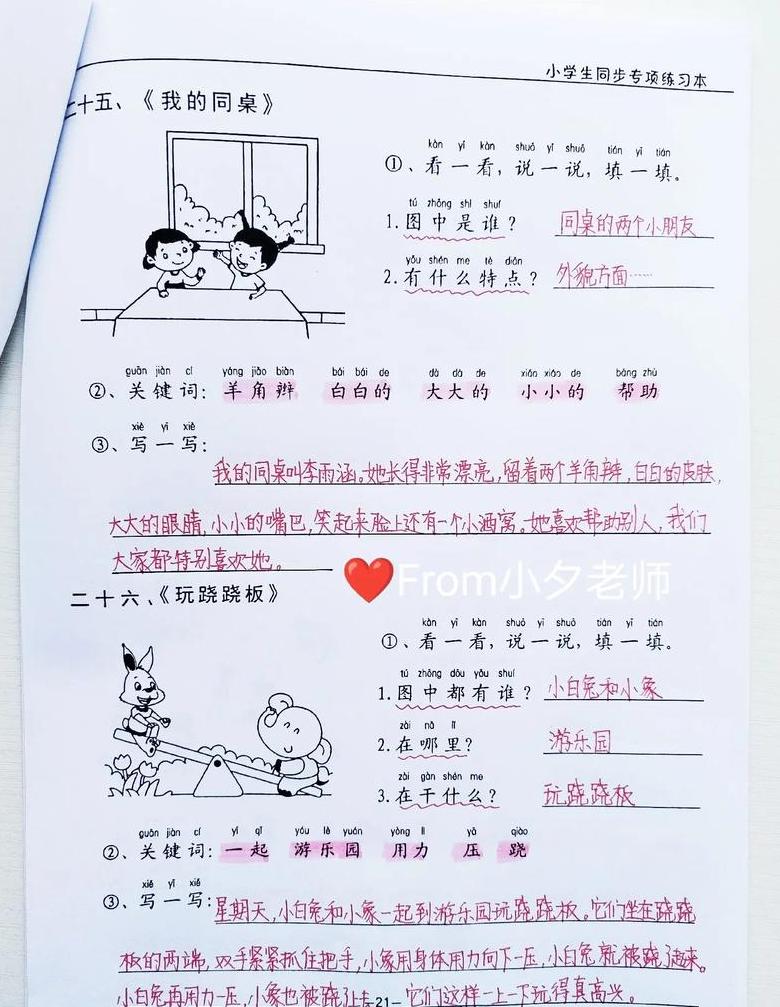 小学生同步专项练习本
二十五、《我的同桌》
kàn yī kàn shuō yī shuō tián yī tián
①、看一看，说一说，填一填。
tú zhōng shì shuí
1.图中是谁？ 同桌的两个小朋友
yǒu shén me tè diǎn
2.有什么特点？ 外貌方面……
guān jiàn cí yáng jiǎo biàn bái bái de dà dà de xiǎo xiǎo de bāng zhù
②、关键词：羊角辫 白白的 大大的 小小的 帮助
xiě yī xiě
③、写一写：
我的同桌叫李雨涵。她长得非常漂亮，留着两个羊角辫，白白的皮肤，
大大的眼睛，小小的嘴巴，笑起来脸上还有一个小酒窝。她喜欢帮助别人，我们
大家都特别喜欢她。
❤️From小夕老师
二十六、《玩跷跷板》
kàn yī kàn shuō yī shuō tián yī tián
①、看一看，说一说，填一填。
tú zhōng dōu yǒu shuí
1.图中都有谁？ 小白兔和小象
zài nǎ lǐ
2.在哪里？ 游乐园
zài gàn shén me
3.在干什么？ 玩跷跷板
guān jiàn cí yī qǐ yóu lè yuán yòng lì yā qiào
②、关键词：一起 游乐园 用力 压 跷
xiě yī xiě
③、写一写：
星期天，小白兔和小象一起到游乐园玩跷跷板。它们坐在跷跷
板的两端，双手紧紧抓住把手，小象用身体用力向下一压，小白兔就被跷了起来。
小白兔再用力一压，小象也被跷了上去。它们这样一上一下玩得真高兴。
-21-